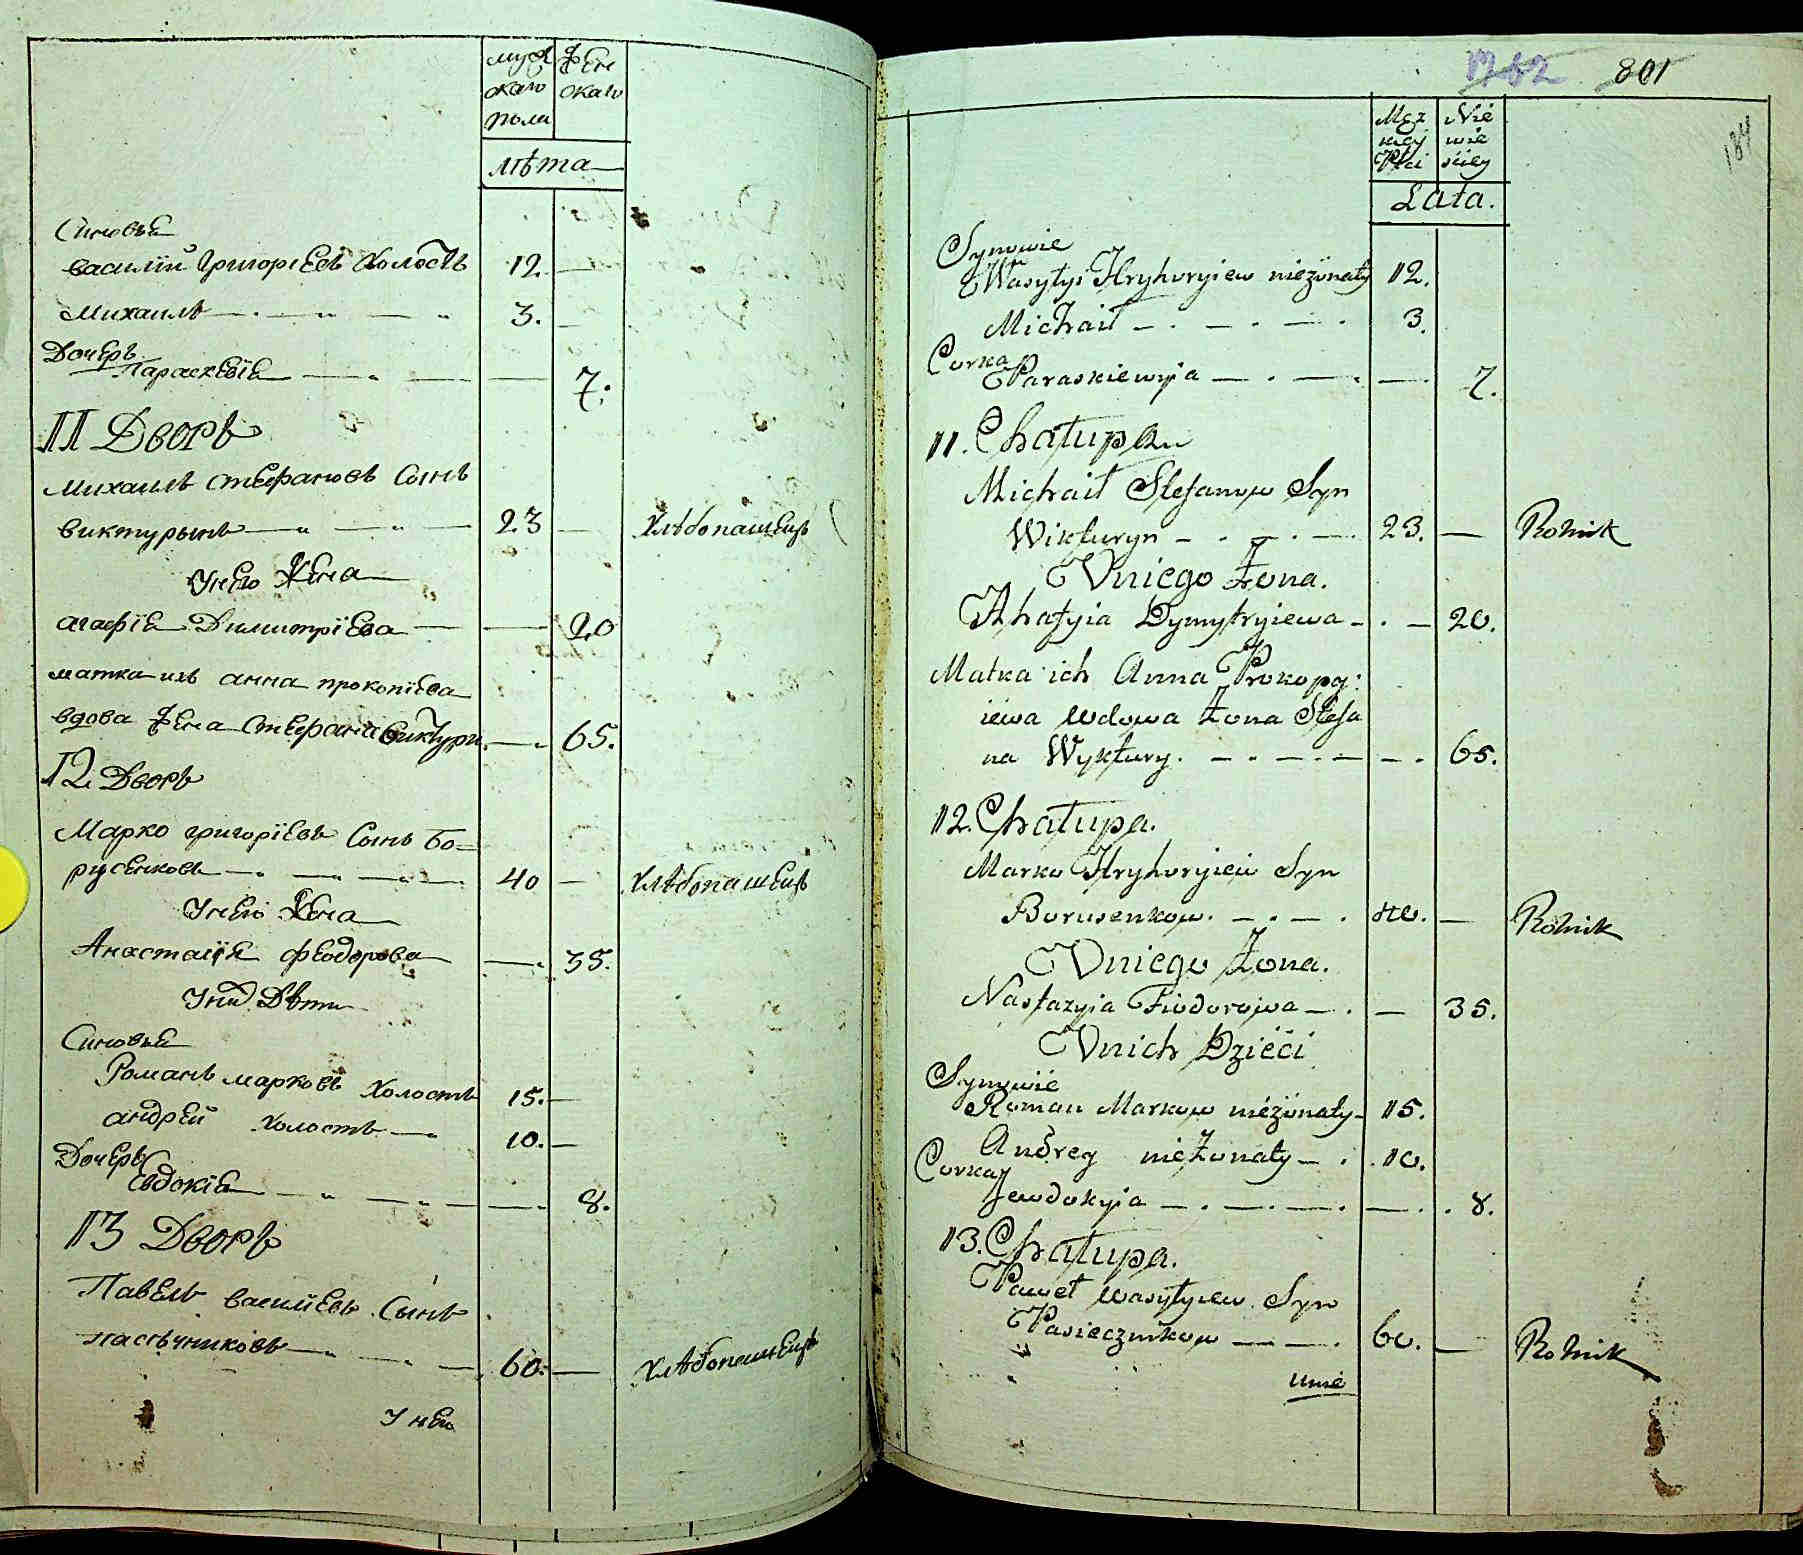 муж Жен
скаго скаго
пола
лѣта
Синовья
василий Григорієвъ Холостъ 12. —
михаилъ — . — „ — „ 3. —
Дочерь
Параскевїя — „ — — 7.
11 Дворъ
михаилъ стефановъ Сынъ
виктурынъ — „ — „ — 23 — Хлѣбопашецъ
Унего Жена
агафїя Димитрїева — — 20
матка ихъ анна прокопїева
вдова Жена стефана виктури — . 65.
12 Дворъ
Марко григорїевъ Сынъ Бо=
русенковъ — . — „ — 40 — Хлѣбопашецъ
Унего Жена
Анастасїя феодорова — . 35.
Уних Дѣти
Синовья
Романъ марковъ Холостъ 15. —
андрей холостъ — „ 10. —
Дочерь
Євдокїя — „ — „ — . 8.
13 Дворъ
Павелъ василїевъ Сынъ
пасѣчниковъ — . — . — 60. — Хлѣбопашецъ
У него
801
184
Męz Nie
kiey wie
Płci sciey
Lata.
Synowie
Wasylyi Hryhoryiew nieżonaty 12.
Michaił — . — . — . 3.
Corka
Paraskiewyia — . — . — . 7.
11. Chałupa
Michaił Stefanow Syn
Wikturyn — . — . — 23. — Rolnik
Uniego Żona.
Ahafyia Dymytryiewa — . — 20.
Matka ich Anna Prokopy:
iewa wdowa Żona Stefa
na Wyktury. — . — . — — . 65.
12. Chałupa.
Marko Hryhoryiew Syn
Borusenkow. — . — . 40. — Rolnik
Uniego Żona.
Nastazyia Fiodorowa — . — 35.
Unich Dzieci
Synowie
Roman Markow nieżonaty — 15.
Andrey nieżonaty — . . 10.
Corka
Jewdokyia — . — . — . — . 8.
13. Chałupa.
Paweł Wasylyiew Syn
Pasiecznikow — — . 60. — Rolnik
unie